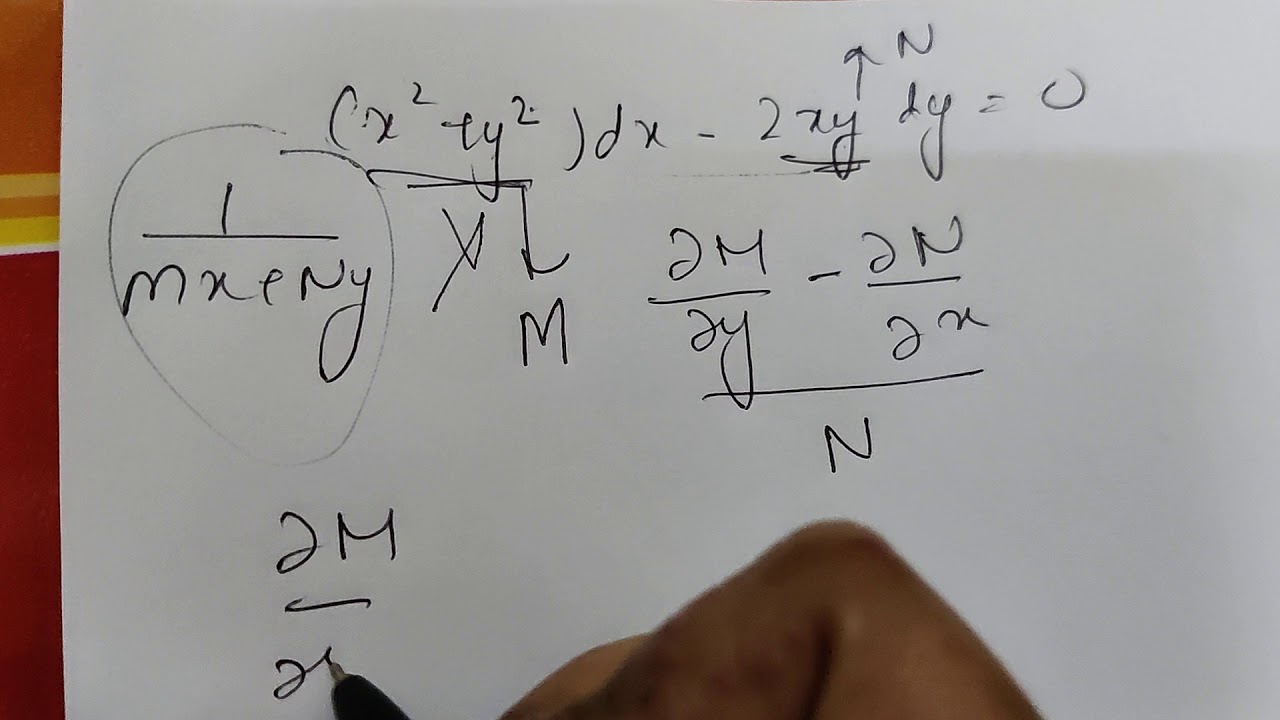 N
(x² + y²)dx - 2xy dy = 0
1
Mx + Ny
M
∂M/∂y - ∂N/∂x
N
∂M
∂